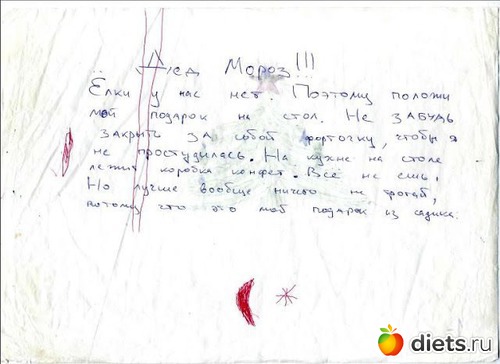 Дед Мороз!!!
Ёлки у нас нет. Поэтому положи
мой подарок на стол. Не ЗАБУДЬ
закрыть за собой форточку, чтобы я
не простудилась. На кухне на столе
лежит коробка конфет. Все не ешь,
Но лучше вообще ничего не трогай,
потому что это мой подарок из садика.
diets.ru